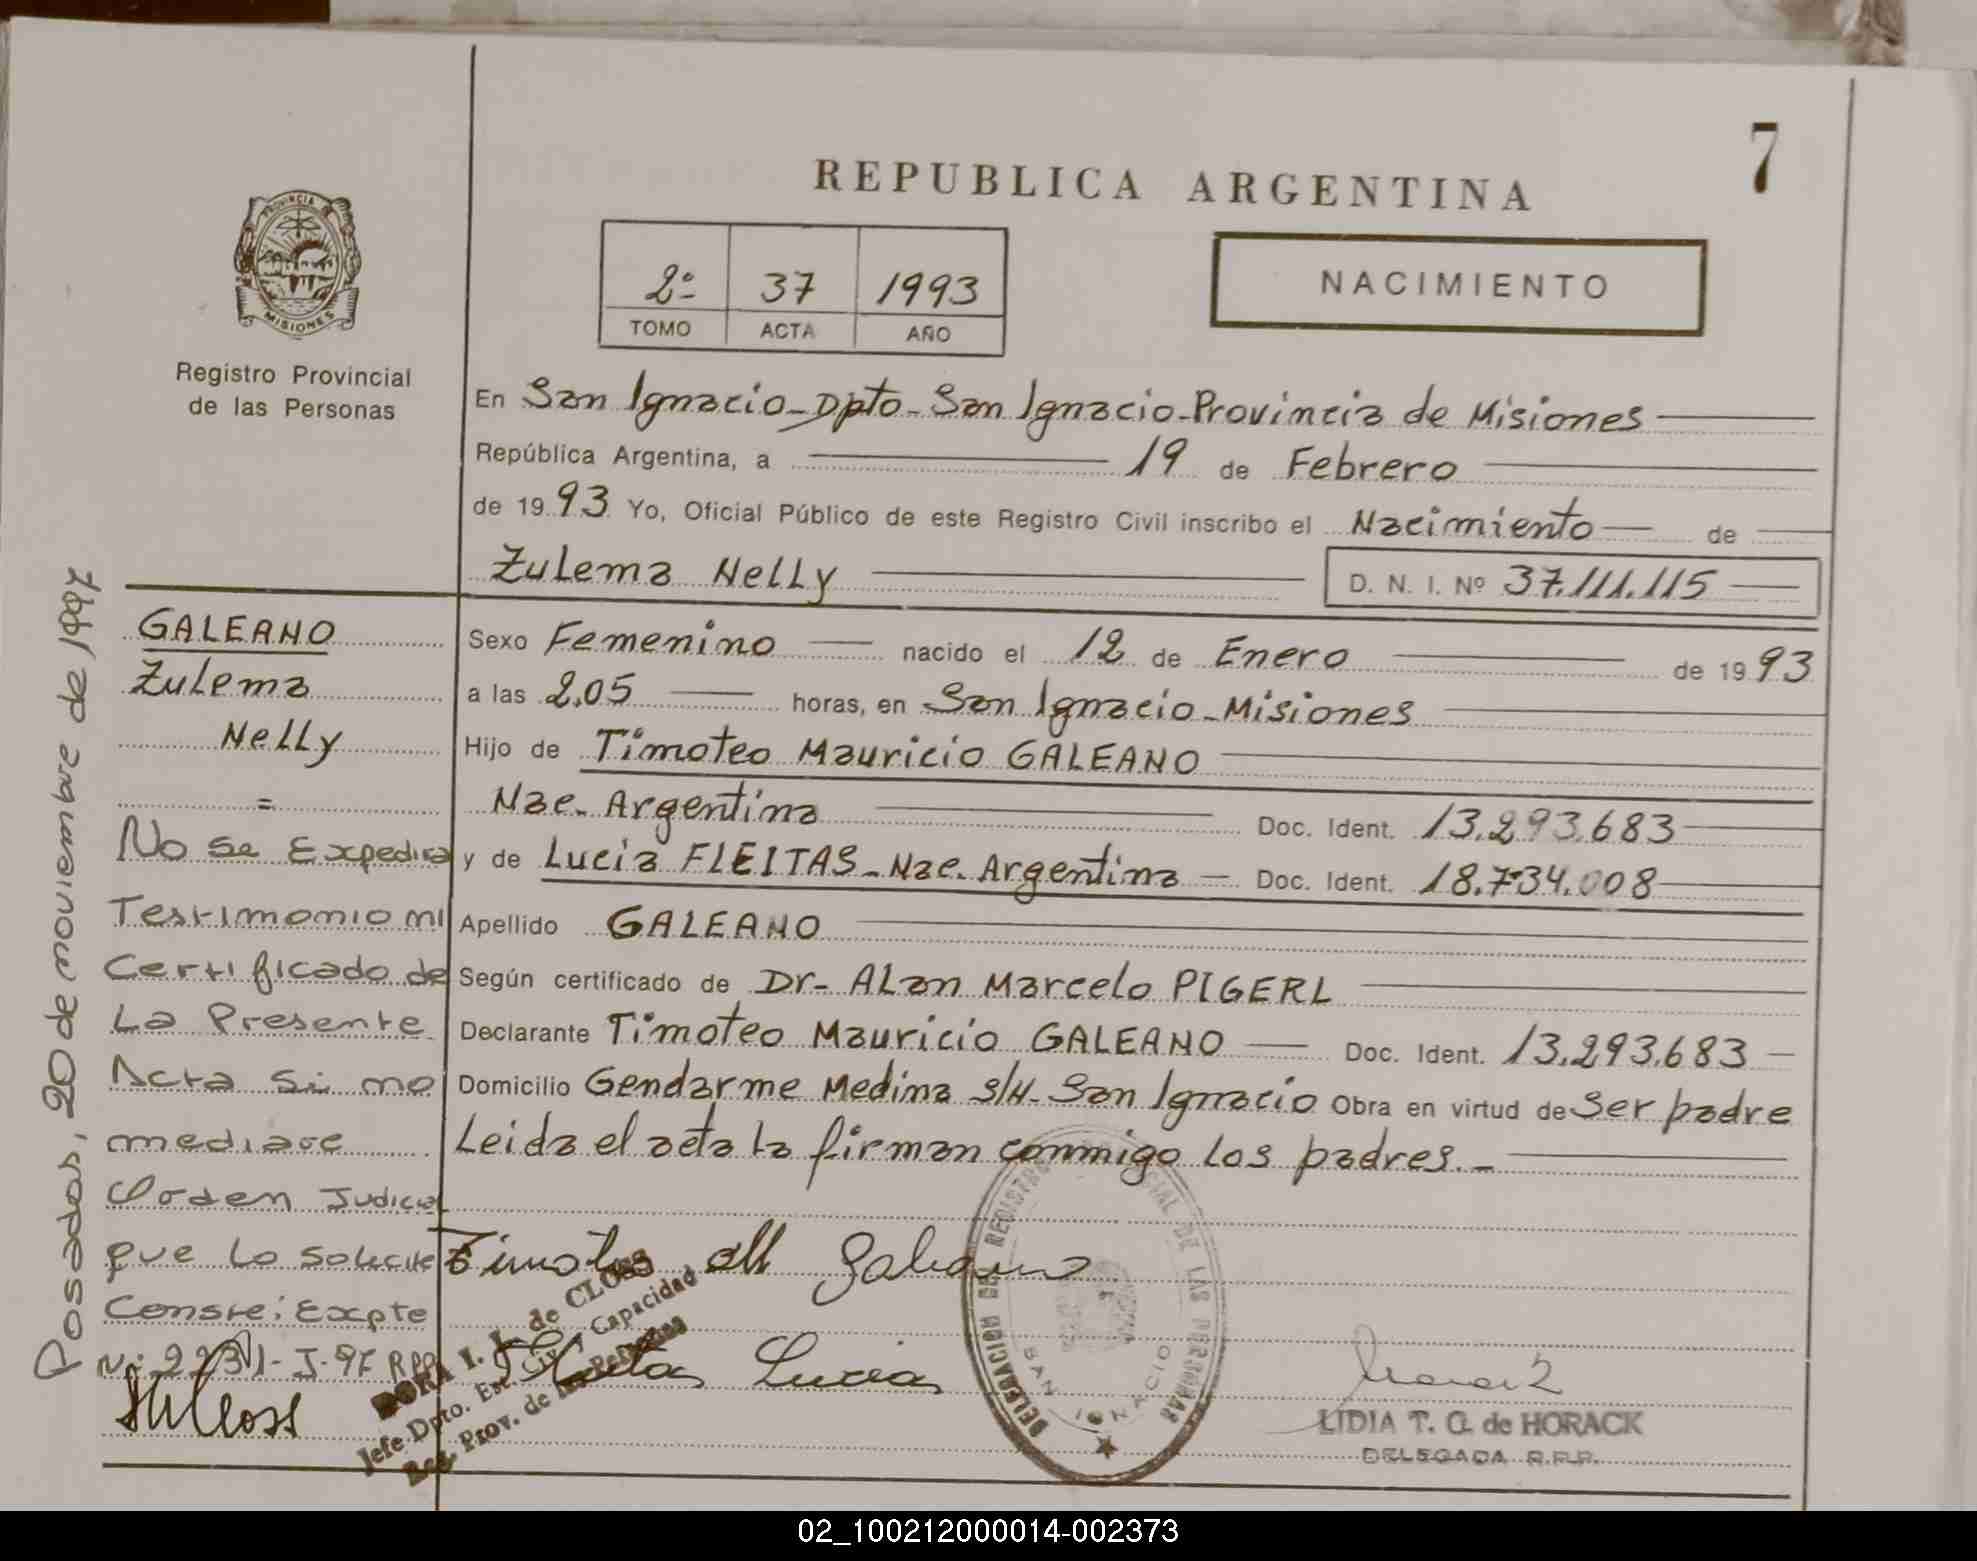 7
REPUBLICA ARGENTINA
PROVINCIA DE
MISIONES
Registro Provincial
de las Personas
2º 37 1993
TOMO ACTA AÑO
NACIMIENTO
En San Ignacio - Dpto - San Ignacio - Provincia de Misiones
República Argentina, a 19 de Febrero
de 1993 Yo, Oficial Público de este Registro Civil inscribo el Nacimiento de
Zulema Nelly D. N. I. Nº 37.111.115
Sexo Femenino nacido el 12 de Enero de 1993
a las 2.05 horas, en San Ignacio - Misiones
Hijo de Timoteo Mauricio GALEANO
Nac. Argentina Doc. Ident. 13.293.683
y de Lucia FLEITAS - Nac. Argentina - Doc. Ident. 18.734.008
Apellido GALEANO
Según certificado de Dr - Alan Marcelo PIGERL
Declarante Timoteo Mauricio GALEANO Doc. Ident. 13.293.683
Domicilio Gendarme Medina S/N - San Ignacio Obra en virtud de Ser padre
Leida el acta la firman conmigo los padres. -
Timoteo M Galeano
Fleitas Lucia
DELEGACION DE REGISTRO PROVINCIAL DE LAS PERSONAS
SAN IGNACIO
LIDIA T. G. de HORACK
DELEGADA R.P.P.
GALEANO
Zulema
Nelly
=
No se Expedira
Testimonio ni
Certificado de
La Presente
Acta Si no
mediare
Orden Judicial
que lo solicite
Conste: Expte
Nº 2231-J-97 RPP
DORA I. L. de CLOSS
Jefe Dpto. Est. Civ. y Capacidad
Reg. Prov. de las Personas
Posadas, 20 de noviembre de 1997
02_100212000014-002373